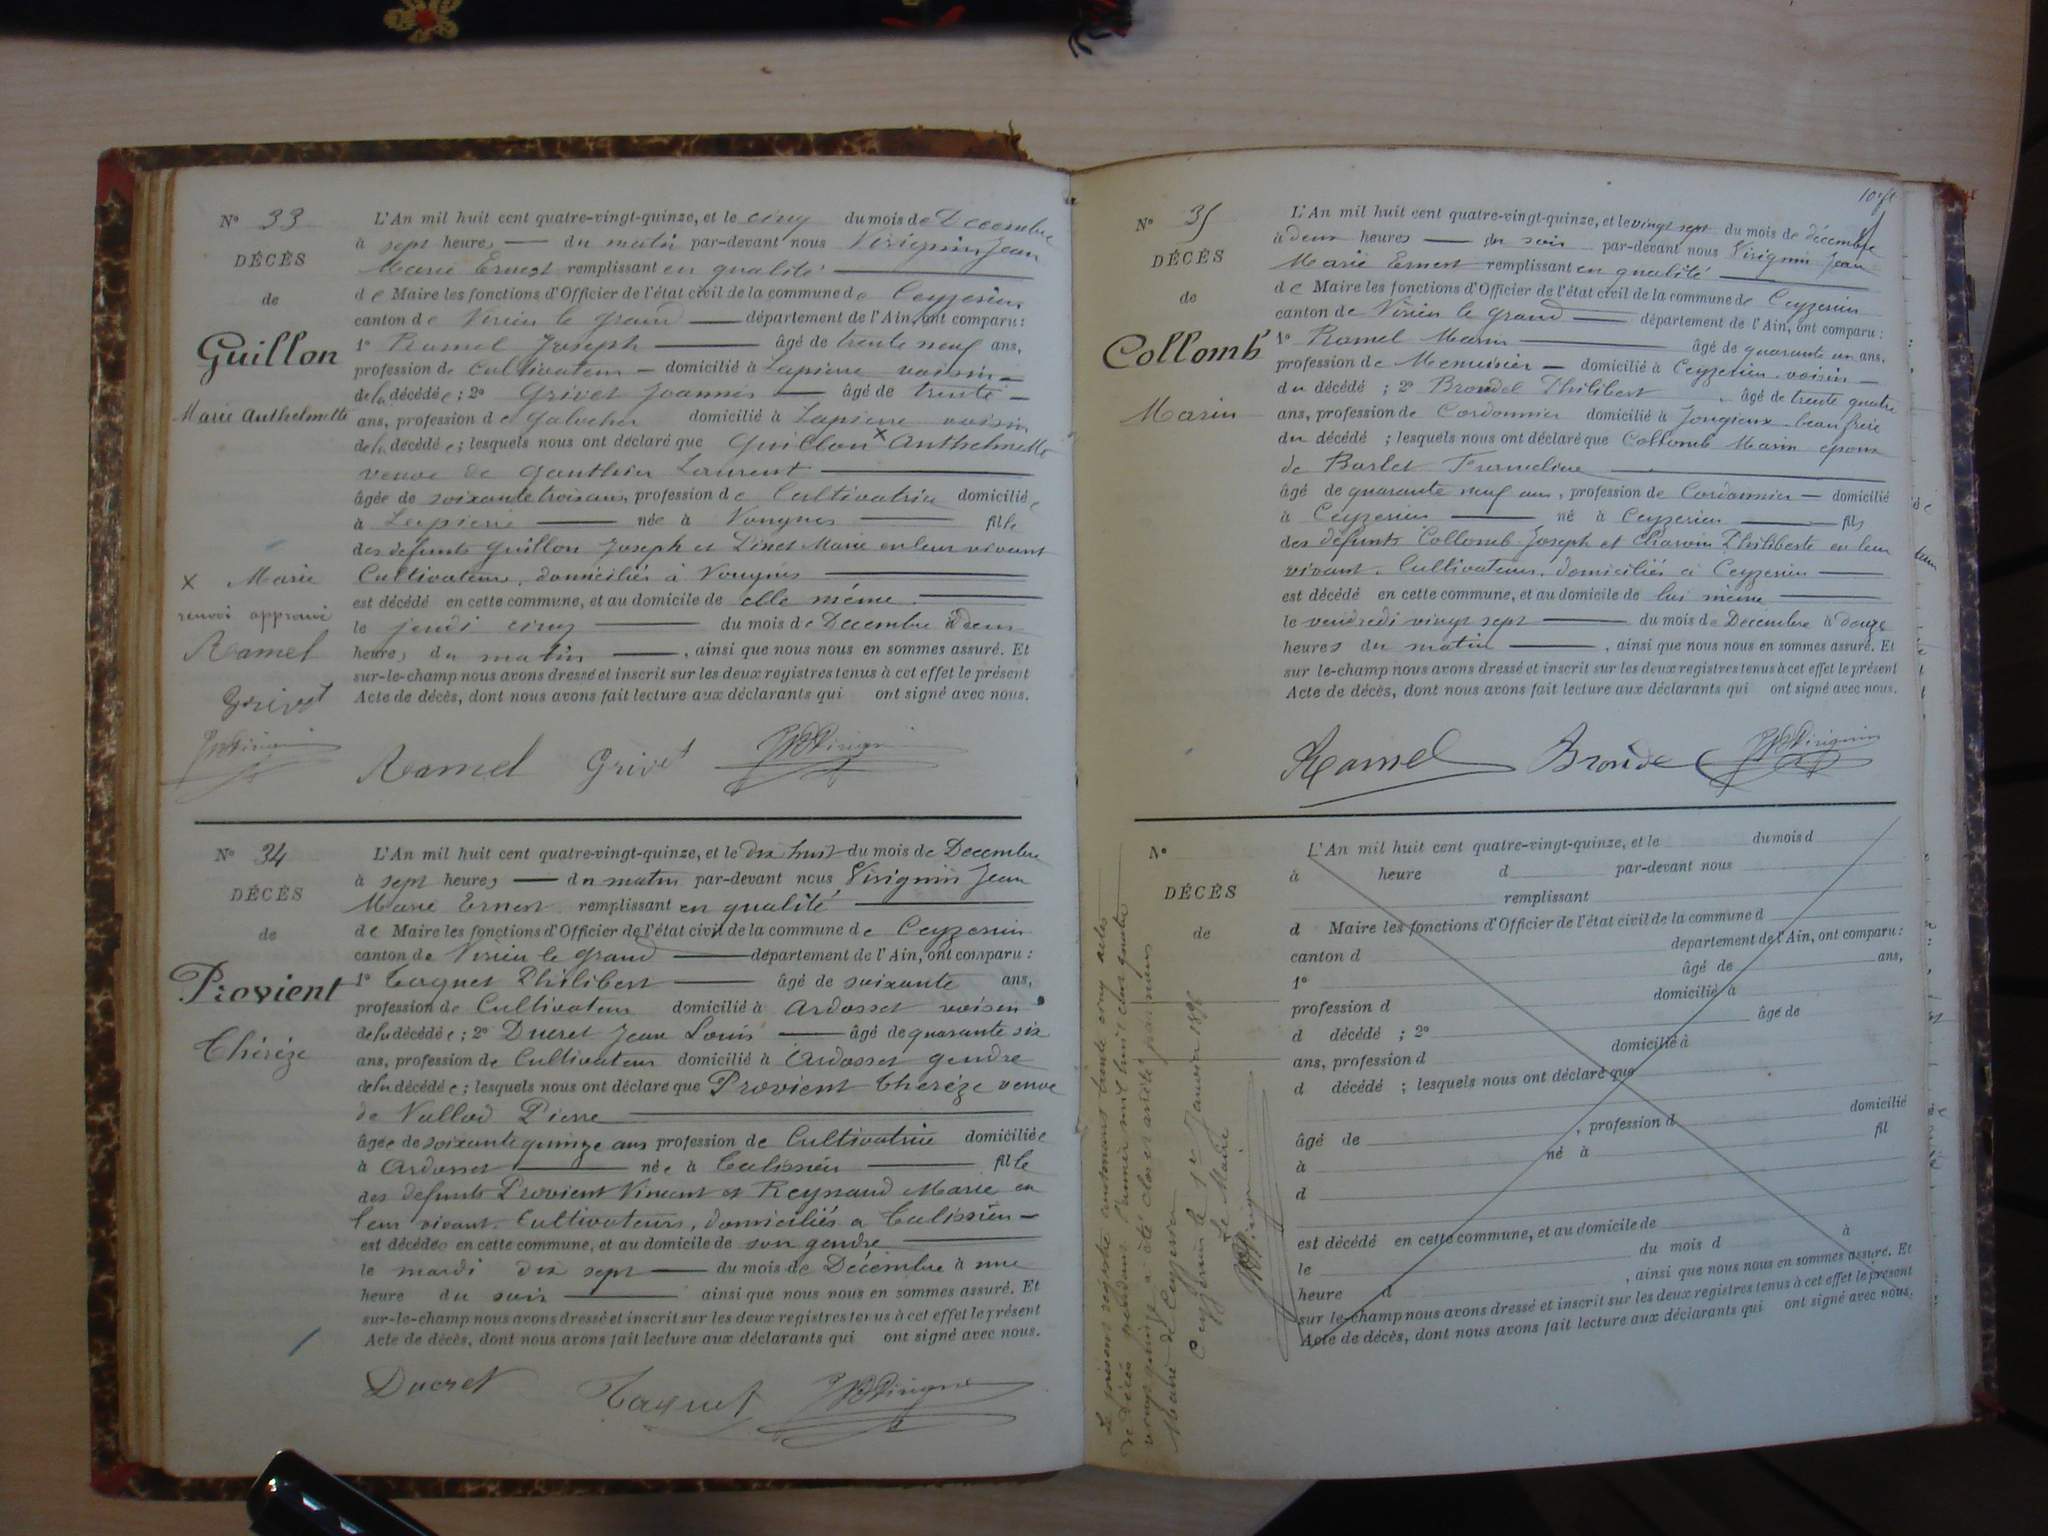 N° 33
DÉCÈS
de
Guillon
Marie Anthelmette
L'An mil huit cent quatre-vingt-quinze, et le cinq du mois de Decembre
à sept heures du matin par-devant nous Virignin Jean
Marie Ernest remplissant en qualité
de Maire les fonctions d'Officier de l'état civil de la commune de Ceyzerieu
canton de Virieu le grand département de l'Ain, ont comparu :
1° Ramel Joseph âgé de trente neuf ans,
profession de cultivateur domicilié à Lapierre voisin
de la décédée ; 2° Grivet Joannès âgé de trente
ans, profession de galocher domicilié à Lapierre voisin
de la décédée ; lesquels nous ont déclaré que Guillon x Anthelmette
veuve de Gauthier Laurent
âgée de soixante trois ans, profession de Cultivatrice domiciliée
à Lapierre née à Vongnes fille
des défunts Guillon Joseph et Dinet Marie en leur vivant
Cultivateurs, domiciliés à Vongnes
est décédé en cette commune, et au domicile de elle même
le jeudi cinq du mois de Decembre à deux
heures du matin , ainsi que nous nous en sommes assuré. Et
sur-le-champ nous avons dressé et inscrit sur les deux registres tenus à cet effet le présent
Acte de décès, dont nous avons fait lecture aux déclarants qui ont signé avec nous.
x Marie
renvoi approuvé
Ramel
Grivet
Ramel Grivet
N° 34
DÉCÈS
de
Provient
Thérèze
L'An mil huit cent quatre-vingt-quinze, et le dix huit du mois de Decembre
à sept heures du matin par-devant nous Virignin Jean
Marie Ernest remplissant en qualité
de Maire les fonctions d'Officier de l'état civil de la commune de Ceyzerieu
canton de Virieu le grand département de l'Ain, ont comparu :
1° Taquet Philibert âgé de soixante ans,
profession de Cultivateur domicilié à Ardosset voisin
de la décédée ; 2° Ducret Jean Louis âgé de quarante six
ans, profession de Cultivateur domicilié à Ardosset gendre
de la décédée ; lesquels nous ont déclaré que Provient Thérèze veuve
de Vallod Pierre
âgée de soixante quinze ans profession de Cultivatrice domiciliée
à Ardosset née à Talissieu fille
des défunts Provient Vincent et Reynaud Marie en
leur vivant Cultivateurs, domiciliés a Talissieu
est décédée en cette commune, et au domicile de son gendre
le mardi dix sept du mois de Décembre à une
heure du soir ainsi que nous nous en sommes assuré. Et
sur-le-champ nous avons dressé et inscrit sur les deux registres tenus à cet effet le présent
Acte de décès, dont nous avons fait lecture aux déclarants qui ont signé avec nous.
Ducret Taquet
N° 35
DÉCÈS
de
Collomb
Marin
L'An mil huit cent quatre-vingt-quinze, et le vingt sept du mois de décembre
à deux heures du soir par-devant nous Virignin Jean
Marie Ernest remplissant en qualité
de Maire les fonctions d'Officier de l'état civil de la commune de Ceyzerieu
canton de Virieu le grand département de l'Ain, ont comparu :
1° Ramel Marin âgé de quarante un ans,
profession de Menuisier domicilié à Ceyzerieu voisin
du décédé ; 2° Brondel Philibert âgé de trente quatre
ans, profession de Cordonnier domicilié à Jongieux beau frère
du décédé ; lesquels nous ont déclaré que Collomb Marin époux
de Barlet
âgé de quarante neuf ans, profession de Cordonnier domicilié
à Ceyzerieu né à Ceyzerieu fils
des défunts Collomb Joseph et Charvin Philiberte en leur
vivant Cultivateurs, domiciliés à Ceyzerieu
est décédé en cette commune, et au domicile de lui même
le vendredi vingt sept du mois de Décembre à douze
heures du matin , ainsi que nous nous en sommes assuré. Et
sur le-champ nous avons dressé et inscrit sur les deux registres tenus à cet effet le présent
Acte de décès, dont nous avons fait lecture aux déclarants qui ont signé avec nous.
Ramel Bronde
N°
DÉCÈS
de
L'An mil huit cent quatre-vingt-quinze, et le du mois d
à heure d par-devant nous
remplissant
d Maire les fonctions d'Officier de l'état civil de la commune d
canton d département de l'Ain, ont comparu :
1° âgé de ans,
profession d domicilié à
d décédé ; 2° âgé de
ans, profession d domicilié à
d décédé ; lesquels nous ont déclaré que
âgé de , profession d domicilié
à né à fil
d
est décédé en cette commune, et au domicile de
le du mois d à
heure d , ainsi que nous nous en sommes assuré. Et
sur le-champ nous avons dressé et inscrit sur les deux registres tenus à cet effet le présent
Acte de décès, dont nous avons fait lecture aux déclarants qui ont signé avec nous.
Le présent registre contenant trente cinq actes
de Décès pendant l'année mil huit cent quatre
vingt quinze a été clos et arrêté par nous
Maire de Ceyzerieu
Ceyzerieu le 1er Janvier 1896
Le Maire